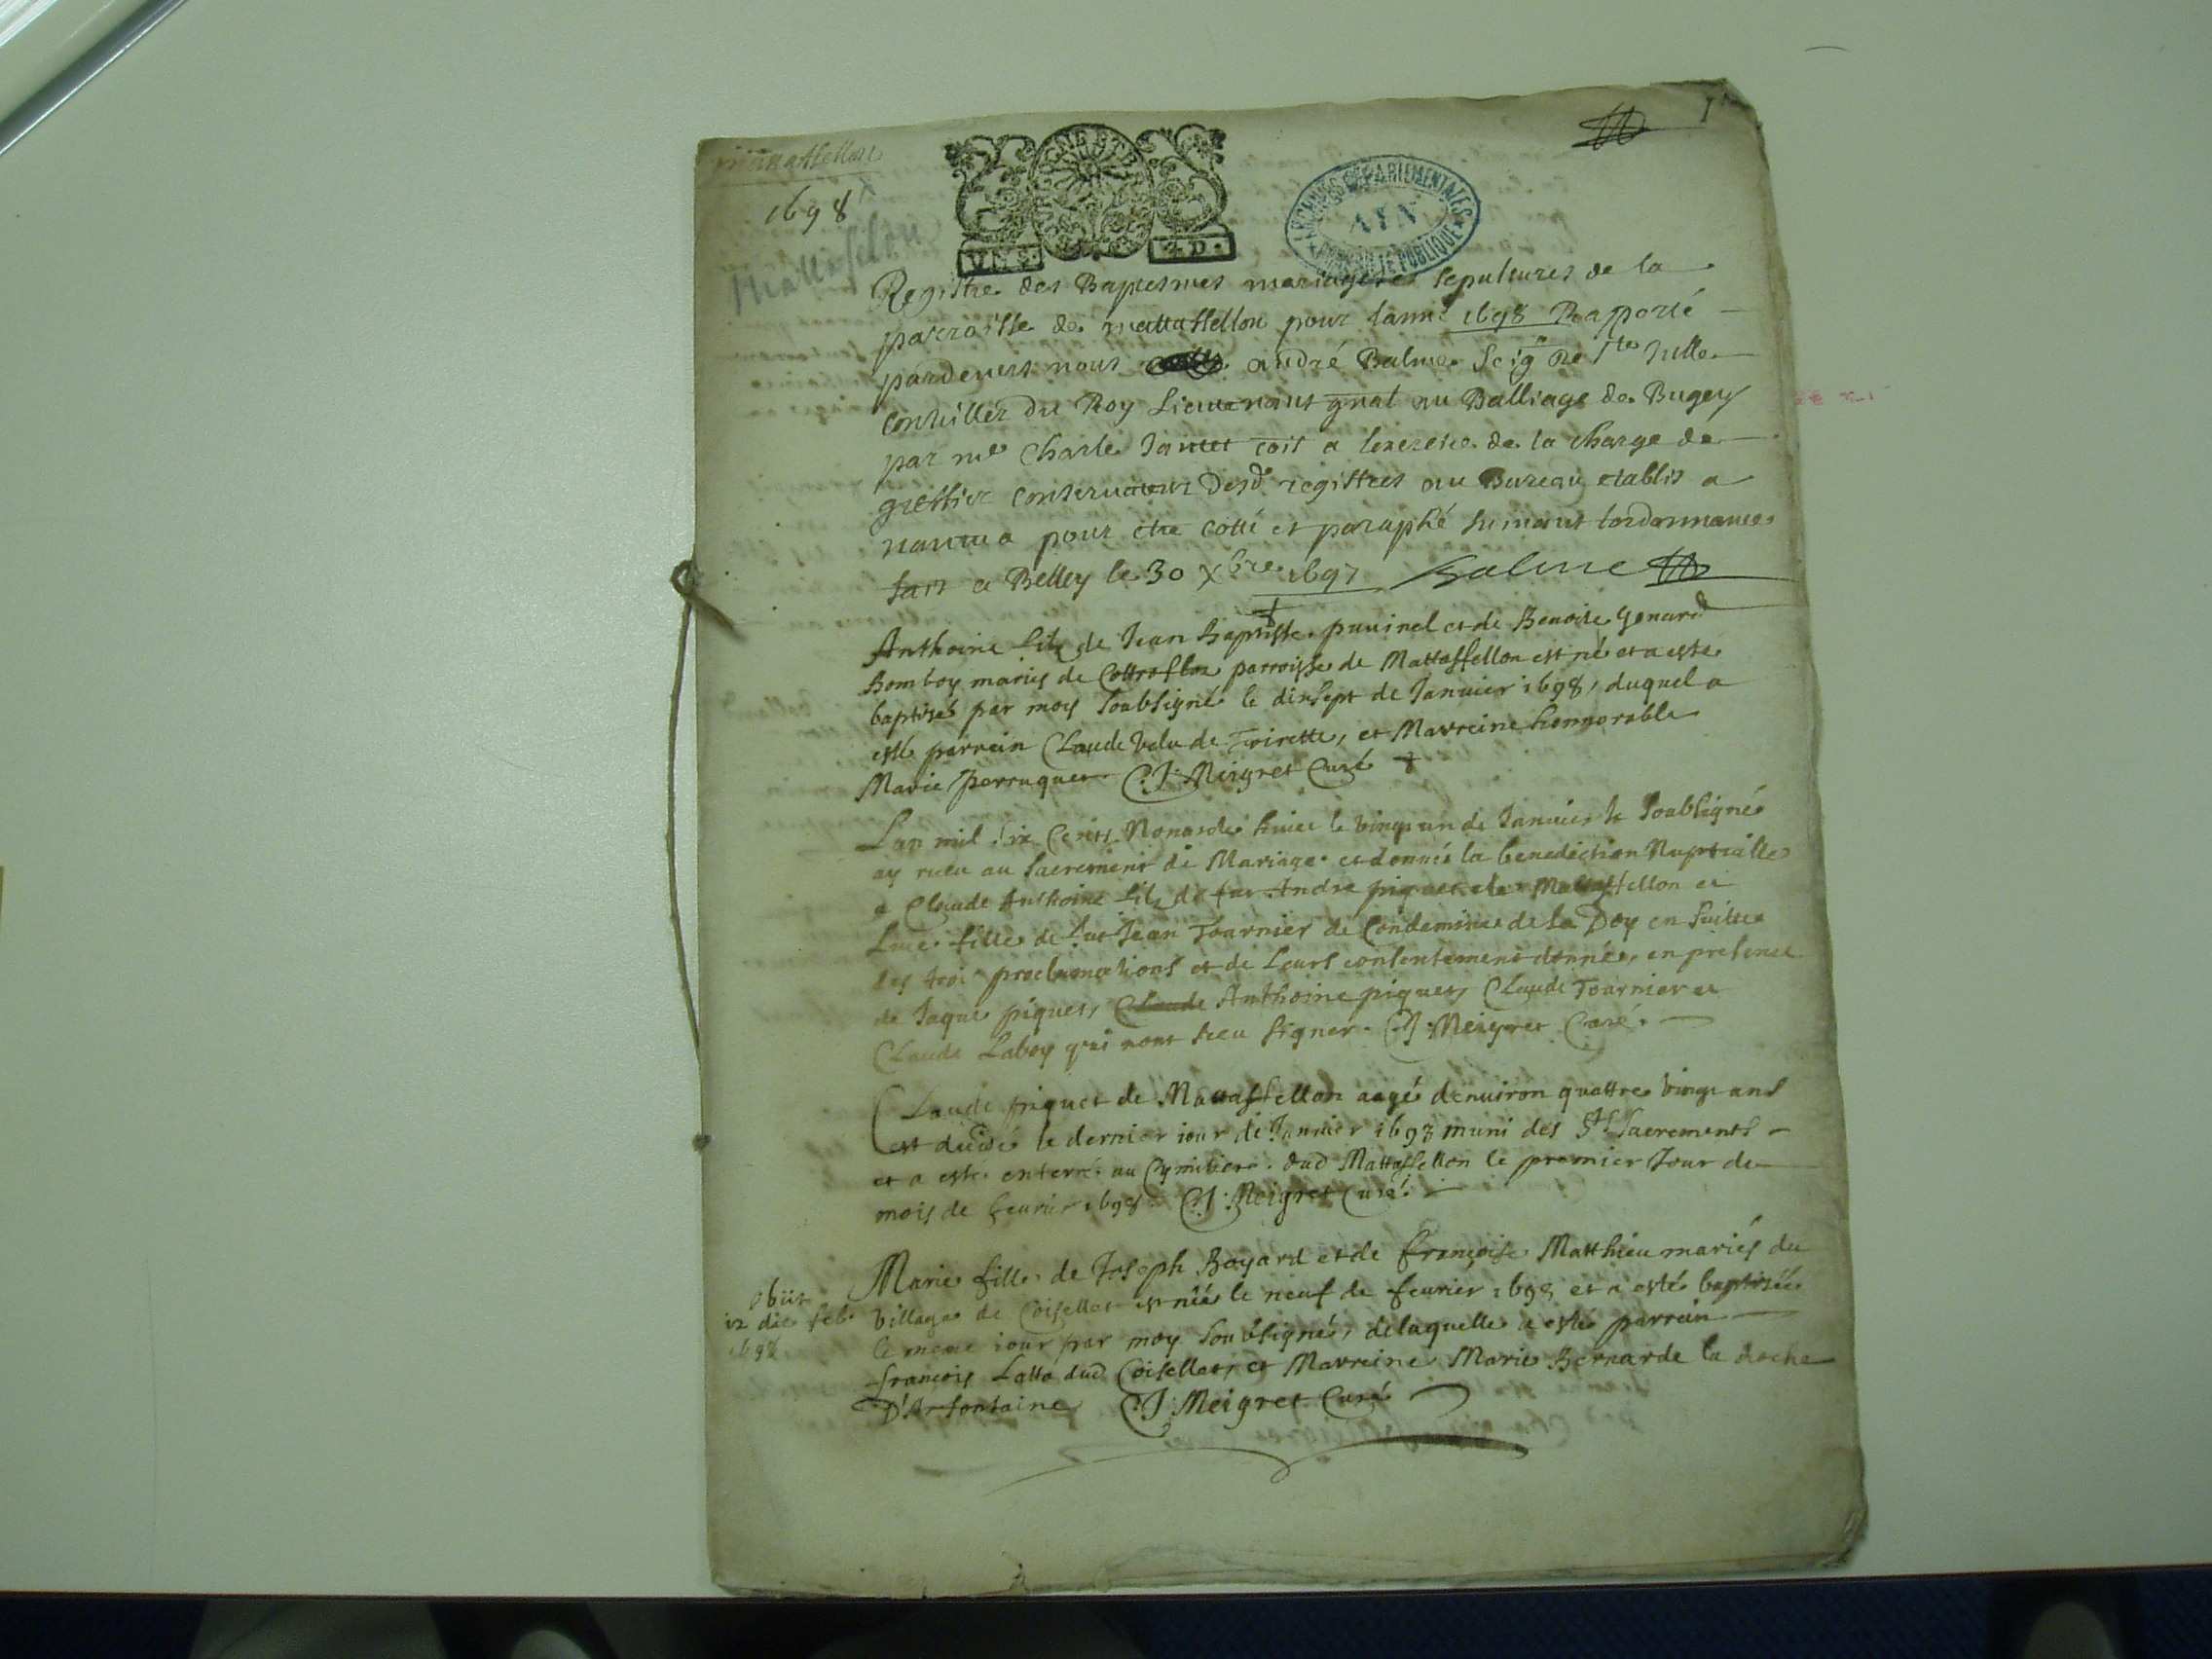 1r
mattafellon
1698
Mattafelon
V.N.S. 4.D.
ARCHIVES DEPARTEMENTALES
AIN
PUBLIQUE
Registre des Baptesmes mariages et sepultures de la
parroisse de mattaffellon pour lanné 1698 Raporté
pardevers nous andré Balme Seigr de Ste Julle
conseiller du Roy Lieutenant gnal au Balliage de Bugey
par me Charle Jantet coit a lexercice de la charge de
greffier conservateur desd registres au Bureau etablis a
nantua pour etre cotté et paraphé suivant lordonnance
fait a Belley le 30 Xbre 1697 Balme
Anthoine filz de Jean Baptiste puvinel et de Benoite Genard
Bomboy mariés de Cottrofloz parroisse de Mattaffellon est né et a esté
baptisé par moy soubsigné le dixsept de Janvier 1698, duquel a
esté parrain Claude Velu de Toirette, et Marreine honnorable
Marie Perruquet C.J. Meigret Curé
Lan mil six Cents Nonante huict le vingt un de Janvier le soubsigné
ay receu au sacrement de Mariage et donné la benediction Nuptialle
a Claude Anthoine filz de feu Andre piquet de Mattaffellon et
Luce fille de feu Jean Tournier de Condemine de la Doy en suitte
des troi proclamations et de leurs consentement donnée, en presence
de Jaque piquet, Claude Anthoine piquet, Claude Tournier et
Claude Laboy qui nont sceu signer. C.J. Meigret Curé.
Claude piquet de Mattaffellon aagé denviron quattre vingt ans
est decedé le dernier iour de Janvier 1698 muni des Sts Sacrements
et a esté enterré au Cymitiere dud Mattaffellon le premier Jour de
mois de fevrier 1698 C.J. Meigret Curé.
Marie fille de Joseph Bayard et de françoise Matthieu mariés du
village de Coisellet est née le neuf de fevrier 1698 et a esté baptisée
le meme iour par moy soubsigné, delaquelle a esté parrain
françois Latta dud Coisellet, et Marreine Marie Bernarde la Roche
D'Arfontaine C.J. Meigret Curé
obiit
12 die feb.
1698